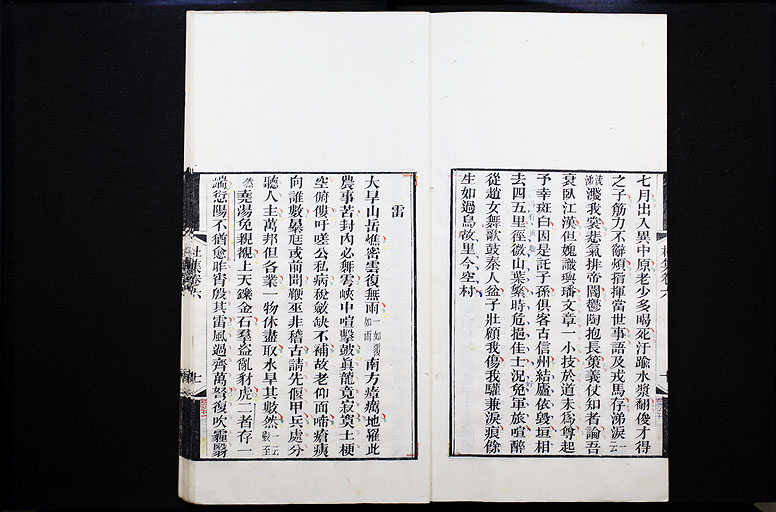 七月出入異中原老少多暍死汗踰水漿翻俊才得
之子筋力不辭煩指揮當世事語及戎馬存涕淚一云
涕淚濺我裳悲氣排帝閽鬱陶抱長策義仗知者論吾
衰臥江漢但媿識璵璠文章一小技於道未爲尊起
予幸斑白因是託子孫俱客古信州結廬依毀垣相
去四五里徑微山葉繁時危抱佳士況免軍旅喧醉
從趙女舞歌鼓秦人盆子壯顧我傷我驩兼淚痕餘
生如過鳥故里今空村
雷
大旱山岳燋密雲復無雨一如復如雨南方瘴癘地罹此
農事苦封内必舞雩峽中喧擊鼓真龍竟寂寞土梗
空俯僂吁嗟公私病稅斂缺不補故老仰面啼瘡痍
向誰數暴尫或前聞鞭巫非稽古請先偃甲兵處分
聽人主萬邦但各業一物休盡取水旱其數然一云數至
然堯湯免親覩上天鑠金石羣盜亂豺虎二者存一
端愆陽不猶愈昨宵殷其雷風過齊萬弩復吹霾翳
杜集卷六